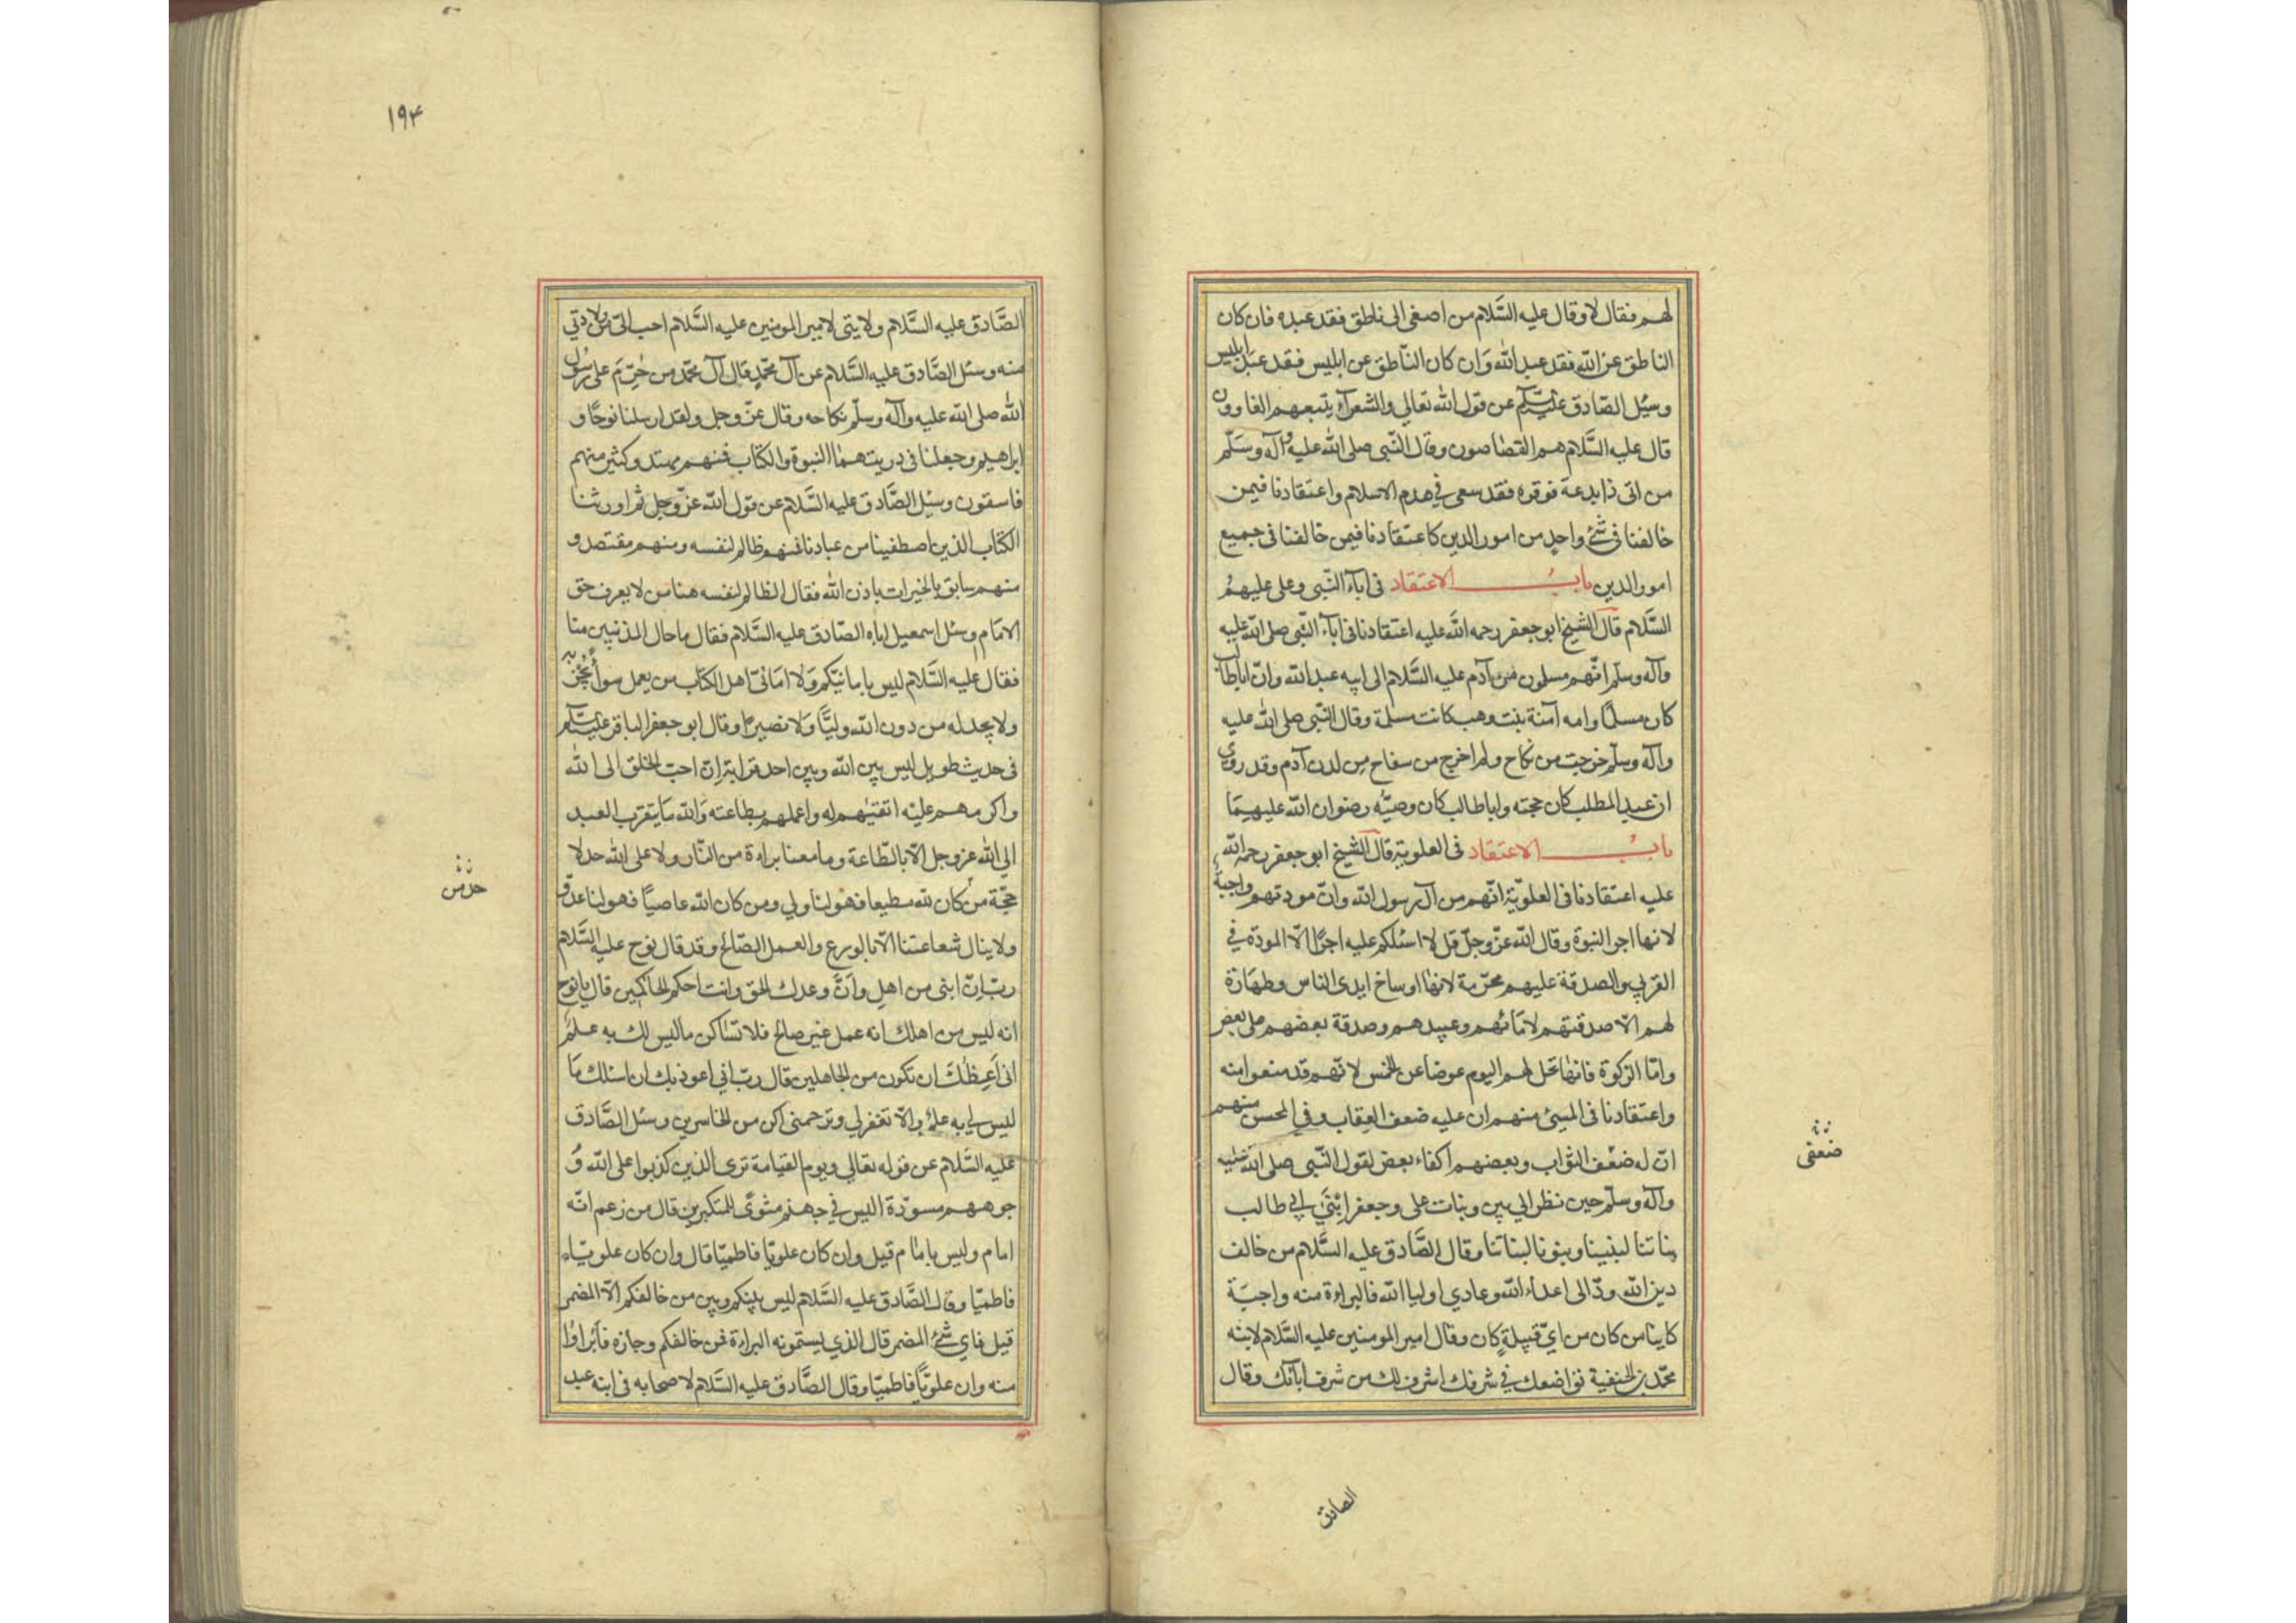 لهم فقال لا وقال عليه السّلام من اصغى الى ناطق فقد عبده فان كان
الناطق عن الله فقد عبد الله وَان كان النّاطق عن ابليس فقد عبد ابليس
وسئل الصّادق عليه السّلم عن قول الله تعالي والشعرآء يتبعهم الغاوون
قال عليه السَّلام هم القصاصون وقال النّبى صلى الله عليه وآله وسَلّم
من اتى ذا بدعة فوقره فقد سعى في هدم الاسلام واعتقادنا فيمن
خالفنا فى شئ واحد من امور الدين كاعتقادنا فيمن خالفنا فى جميع
امور الدين باب الاعتقاد فى اباء النّبى وعلى عليهم
السَّلام قال الشيخ ابو جعفر رحمه الله عليه اعتقادنا فى آباء النّبى صلى الله عليه
وآله وسلم انّهم مسلمون من آدم عليه السَّلام الى ابيه عبد الله وانّ اباطالب
كان مسلمًا وامه آمنة بنت وهب كانت مسلمة وقال النّبى صلى الله عليه
وآله وسلّم خرجت من نكاح ولم اخرج من سفاح مِن لدن آدم وقد روى
ان عبد المطلب كان حجته واباطالب كان وصيّه رضوان الله عليهما
باب الاعتقاد فى العلوية قال الشيخ ابو جعفر رحمه الله
عليه اعتقادنا فى العلويّة انّهم من آل رسول الله وانّ مودتهم واجبة
لانها اجر النبوة وقال الله عزّ وجلّ قل لا اسئلكم عليه اجرًا الّا المودّة في
القربي والصدقة عليهم محرّمة لانها اوساخ ايدى الناس وطهارة
لهم الّا صدقتهم لامائهم وعبيدهم وصدقة بعضهم على بعض
وامّا الزكوة فانها تحل لهم اليوم عوضا عن الخمس لانّهم قد منعوا منه
واعتقادنا فى المسئ منهم ان عليه ضعف العِقاب وفي المحسن منهم
انّ له ضعْف الثواب وبعضهم اكفاء بعض لقول النّبى صلى الله عليه
وآله وسلّم حين نظر الي بنين وبنات على وجعفر ابْنَيْ ابي طالب
بناتنا لبنينا وبنونا لبناتنا وقال الصَّادق عليه السَّلام من خالف
دين الله وودّ الى اعداء الله وعادي اوليا الله فالبراءة منه واجبَة
كاينا من كان من ايّ قبيلةٍ كان وقال امير المومنين عليه السَّلام لابنه
محمّد بن الحنفية تواضعك في شرفك اشرف لك من شرف ابآئك وقال
الصادق
ضعفى
١٩٤
الصَّادق عليه السَّلام ولايتى لامير المومنين عليه السَّلام احب الىّ من ولادتي
منه وسئل الصَّادق عليه السَّلام عن آل محمّدٍ قال آل محمّد من حُرّمَ على رسُول
الله صلى الله عليه وآله وسلّم نكاحه وقال عزّ وجل ولقد ارسلنا نوحًا و
ابراهيم وجعلنا فى ذريتهما النبوة والكتاب فمنهم مهتد وكثير منهم
فاسقون وسئل الصَّادق عليه السَّلام عن قول الله عزّ وجل ثم اورثنا
الكتاب الذين اصطفينا من عبادنا فمنهم ظالم لنفسه ومنهم مقتصد و
منهم سابق بالخيرات باذن الله فقال الظالم لنفسه هنا من لا يعرف حق
الامَام وسئل اسمعيل اباه الصّادق عليه السَّلام فقال ما حال المذنبين منا
فقال عليه السَّلام ليس بامانيّكم وَلا امَانىّ اهل الكتاب من يعمل سوأً يُجز به
ولا يجد له من دون الله وليًّا وَلا نصيرًا وقال ابو جعفر الباقر عليه السّلم
فى حديث طويل ليس بين الله وبين احد قرابة اِنّ احبّ الخلق الى الله
واكرمهم عليْه اتقيٰهم له واعملهم بطاعته وَالله مَا يتقرب العبد
الي الله عز وجل الّا بالطّاعة وما معنا براءة من النّار ولا على الله حد لا
حجّة من كان لله مطيعا فهو لنا ولي ومن كان الله عاصيًا فهو لنا عدّو
ولا ينال شعاعتنا الّا بالورع والعمل الصّالح وقد قال نوح عليه السَّلام
ربّ اِنّ ابنى من اهلي وَانّ وعدك الحق وانت احكم الحاكمين قال يا نوح
انه ليس من اهلك انه عمل غير صالح فلا تسٰاكن ما ليس لك به علمٌ
انى اَعِظُكَ ان تكون من الجاهلين قال ربّ اني اعوذ بك ان اسئلك مَا
ليس لي به علمٌ والّا تغفر لي وترحمنى اكن من الخاسرين وسئل الصَّادق
عليه السَّلام عن قوله تعالي ويوم القيامة ترى الذين كذبوا على الله وُ
جوههم مسودّة اليس في جهنم مثوىً للمتكبرين قال من زعم انّه
امام وليس بامٰام قيل وان كان علويّا فاطميّا قال وان كان علويّاء
فاطميّا وقال الصَّادق عليه السَّلام ليس بينكم وبين من خالفكم الّا المضمر
قيل فاي شئ المضمر قال الذي يسمّونه البراءة فمن خالفكم وجازه فابراوا
منه وان علويًّا فاطميّا وقال الصَّادق عليه السَّلام لاصحابه فى ابنه عبد
حد من